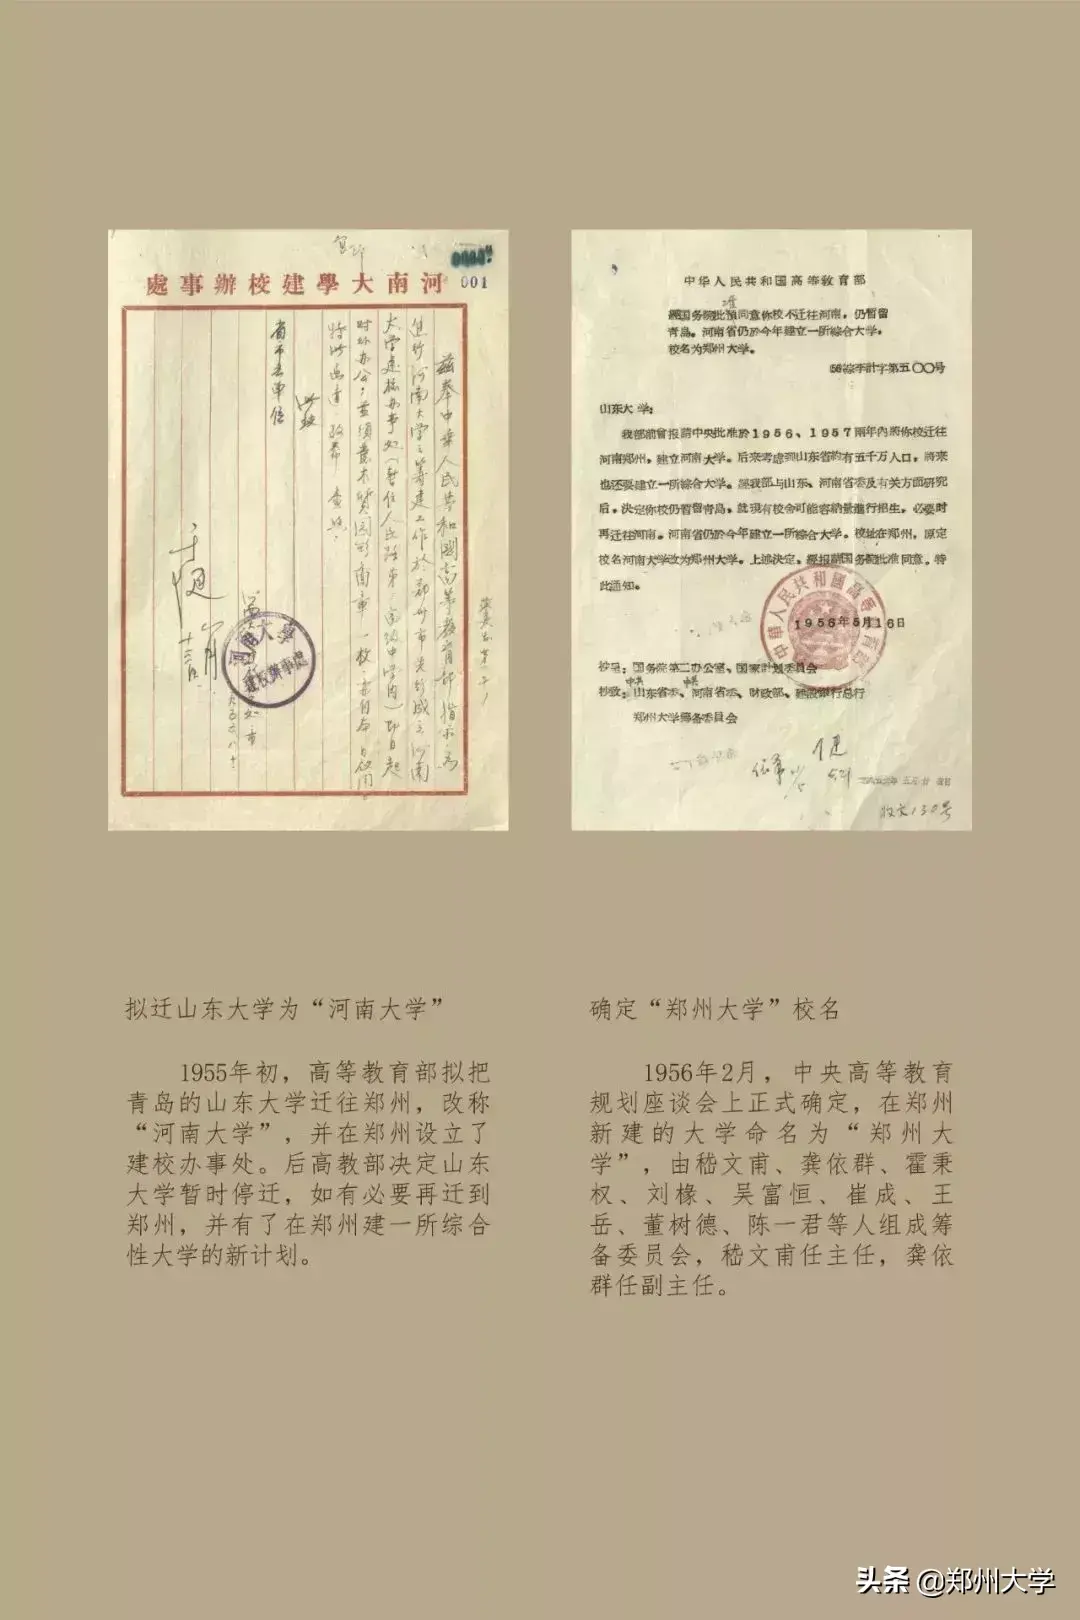 河南大學建校辦事處
001
茲奉中華人民共和國高等教育部指示為
進行河南大学之籌建工作於郑州市先行成立河南
特此函達
此致
省市各单位
河南大學
建校辦事處
中华人民共和国高等教育部
經国务院批准同意你校不迁往河南，仍暫留
青岛。河南省仍於今年建立一所綜合大学。
校名为郑州大学。
山东大学：
我部前曾报請中央批准於1956、1957兩年內將你校迁往
河南郑州，建立河南大学。后来考虑到山东省約有五千万人口，將来
也还要建立一所綜合大学。經我部与山东、河南省委及有关方面研究
后，决定你校仍暫留青岛，就現有校舍可能容納量進行招生。必要时
再迁往河南。河南省仍於今年建立一所綜合大学。校址在郑州，原定
校名河南大学改为郑州大学。上述决定，經报請国务院批准同意。特
此通知。
1956年5月16日
抄呈：国务院第二办公室、国家計划委員会
抄致：山东省委、河南省委、財政部、建設銀行总行
郑州大学籌备委員会
收文130号
拟迁山东大学为“河南大学”
1955年初，高等教育部拟把
青岛的山东大学迁往郑州，改称
“河南大学”，并在郑州设立了
建校办事处。后高教部决定山东
大学暂时停迁，如有必要再迁到
郑州，并有了在郑州建一所综合
性大学的新计划。
确定“郑州大学”校名
1956年2月，中央高等教育
规划座谈会上正式确定，在郑州
新建的大学命名为“郑州大
学”，由嵇文甫、龚依群、霍秉
权、刘椽、吴富恒、崔成、王
岳、董树德、陈一君等人组成筹
备委员会，嵇文甫任主任，龚依
群任副主任。
头条 @郑州大学